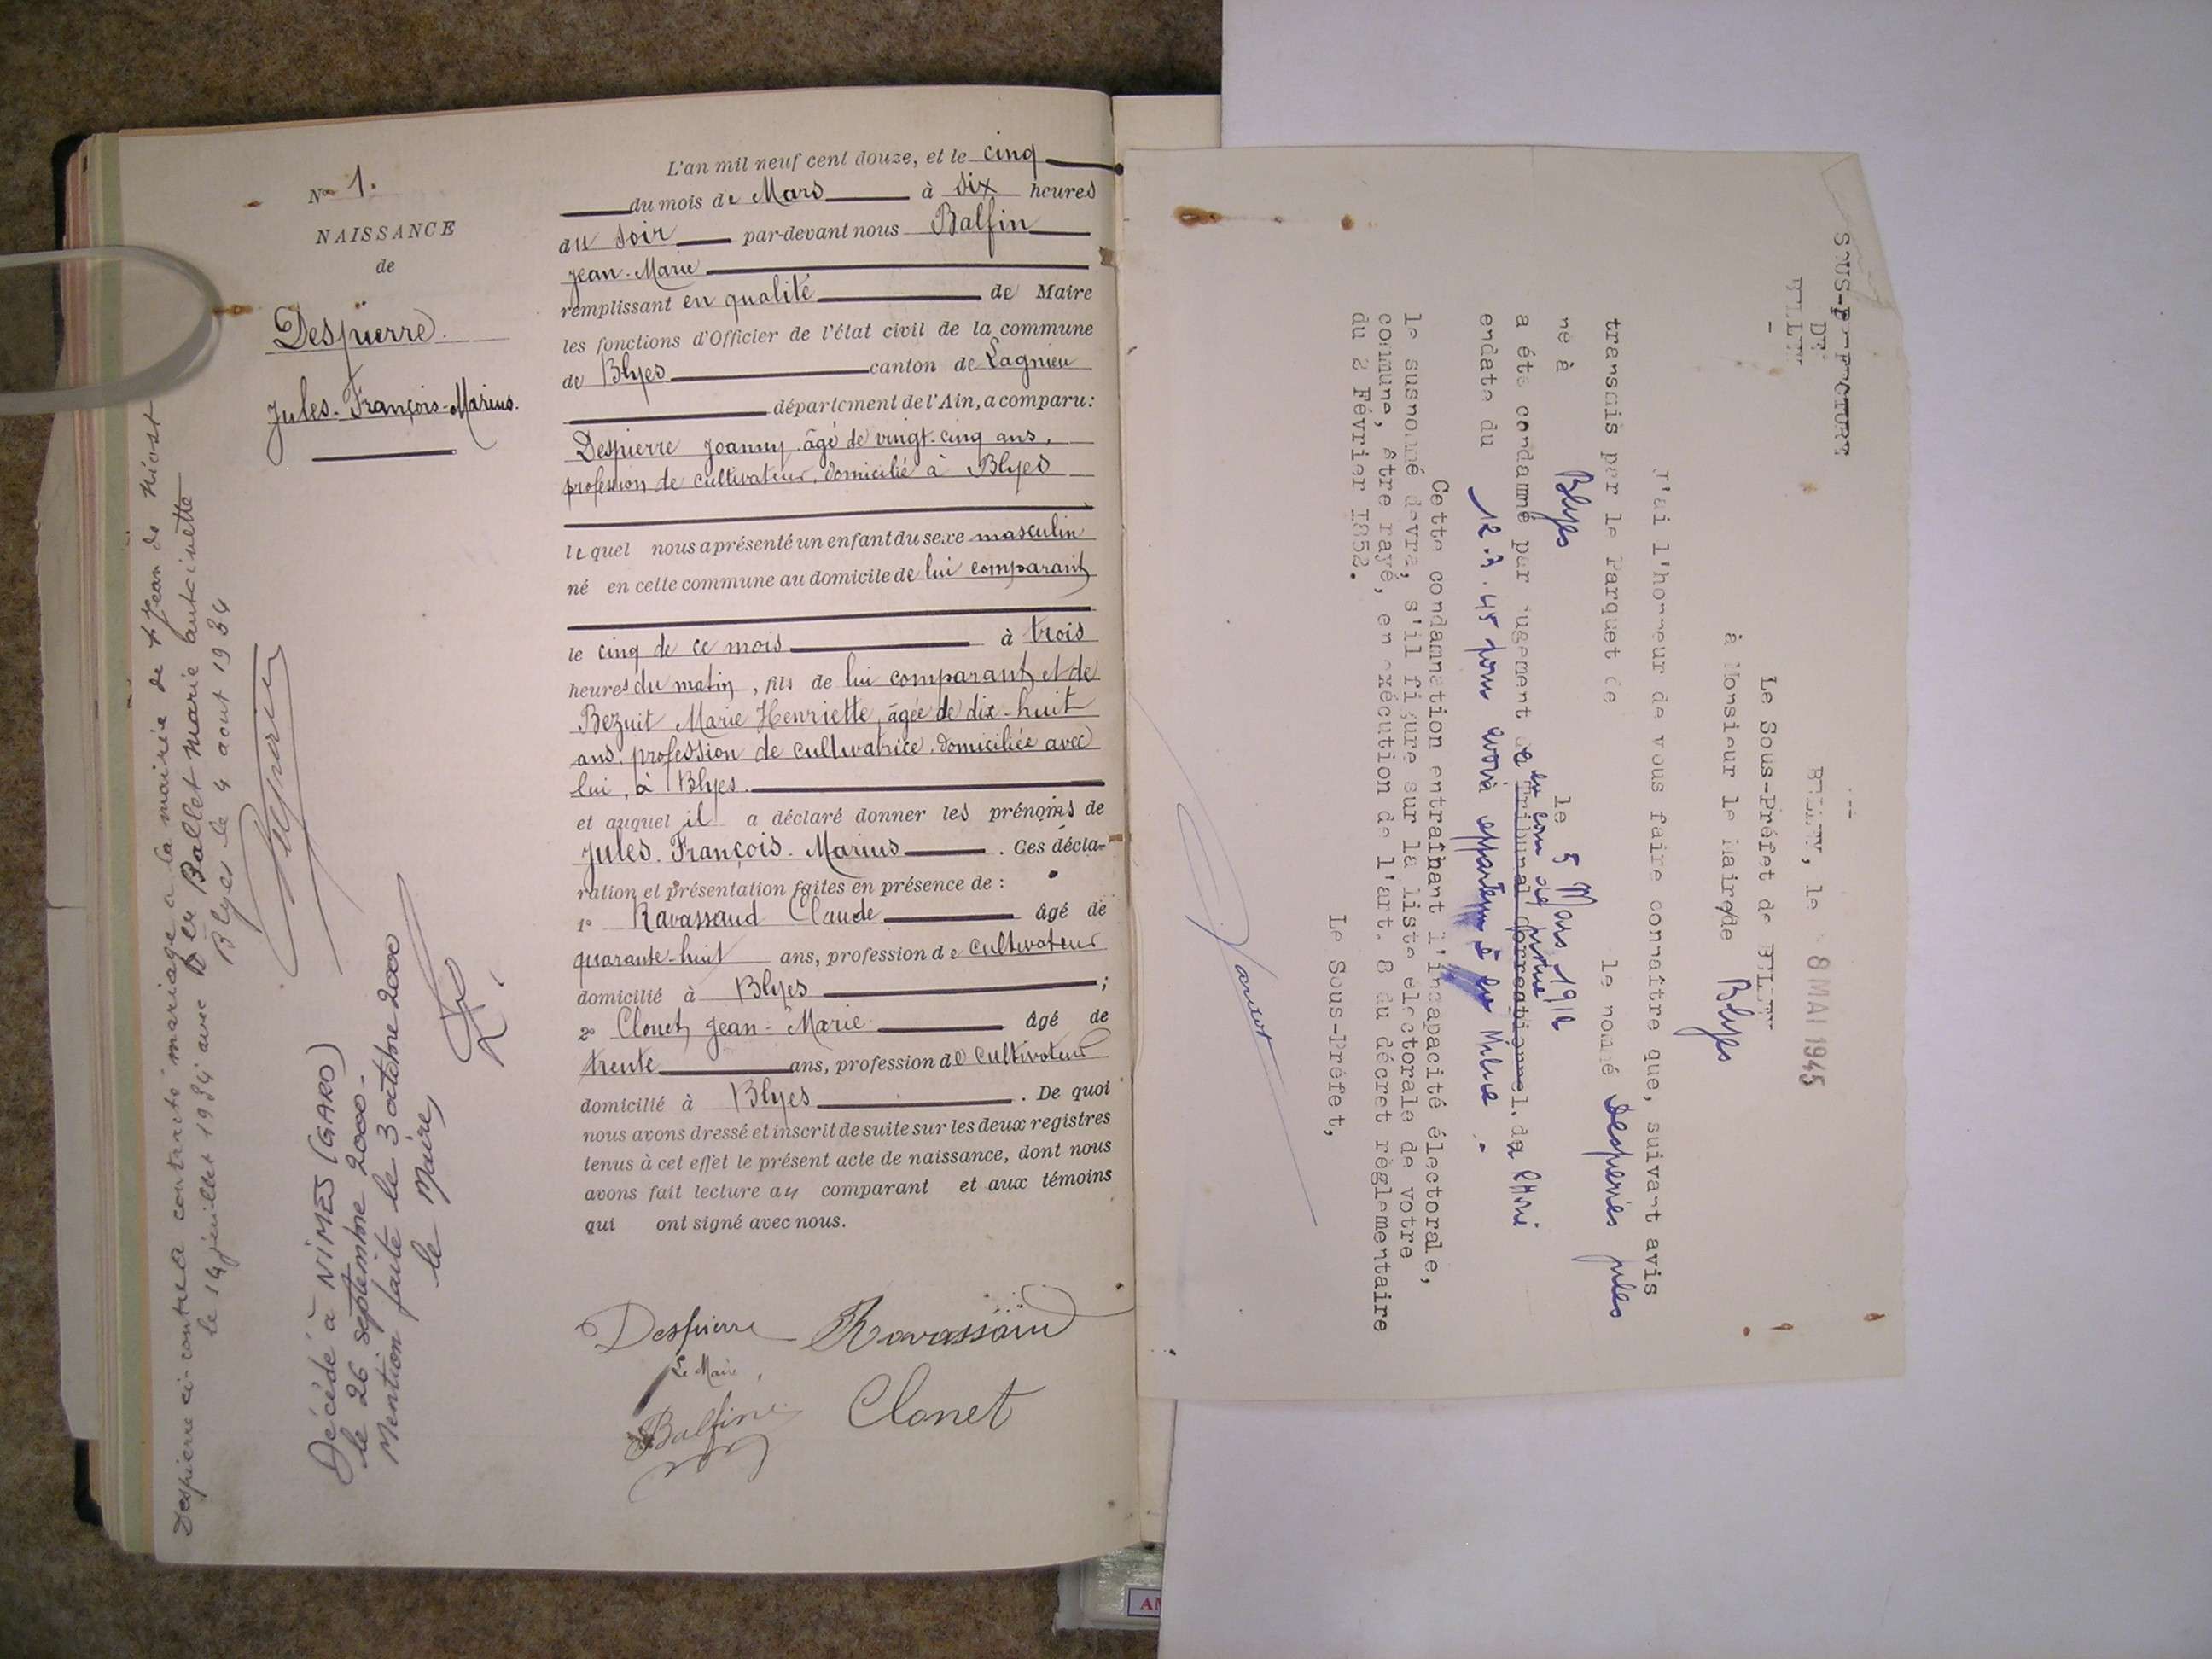 No 1.
NAISSANCE
de
Despierre
Jules-François-Marius.
L'an mil neuf cent douze, et le cinq
du mois de Mars à six heures
du soir par-devant nous Balfin
Jean-Marie
remplissant en qualité de Maire
les fonctions d'Officier de l'état civil de la commune
de Blyes canton de Lagnieu
département de l'Ain, a comparu:
Despierre Joanny âgé de vingt-cinq ans,
profession de cultivateur, domicilié à Blyes
lequel nous a présenté un enfant du sexe masculin
né en cette commune au domicile de lui comparant
le cinq de ce mois à trois
heures du matin, fils de lui comparant et de
Bezuit Marie Henriette, âgée de dix-huit
ans, profession de cultivatrice, domiciliée avec
lui, à Blyes.
et auquel il a déclaré donner les prénoms de
Jules. François. Marius. Ces décla-
ration et présentation faites en présence de:
1o Ravassaud Claude âgé de
quarante-huit ans, profession de cultivateur
domicilié à Blyes;
2o Clonet Jean-Marie âgé de
trente ans, profession de cultivateur
domicilié à Blyes. De quoi
nous avons dressé et inscrit de suite sur les deux registres
tenus à cet effet le présent acte de naissance, dont nous
avons fait lecture au comparant et aux témoins
qui ont signé avec nous.
Despierre Ravassaud
Le Maire,
Balfin Clonet
Despierre ci-contre a contracté mariage à la mairie de St Jean de Niost
le 14 juillet 1934 avec Ballet Marie Antoinette
Blyes le 4 aout 1934
Décédé à NIMES (GARD)
le 26 septembre 2000.
Mention faite le 3 octobre 2000
le Maire,
SOUS-PREFECTURE
DE
BELLEY
BELLEY, le 8 MAI 1945
Le Sous-Préfet de BELLEY
à Monsieur le Maire de Blyes
J'ai l'honneur de vous faire connaître que, suivant avis
transmis par le Parquet de le nommé Desperies Jules
né à Blyes le 5 Mars 1912
a été condamné par jugement de la cour de justice Tribunal correctionnel de
en date du 12.3.45 pour avoir appartenu à la Milice.
Cette condamnation entraînant l'incapacité électorale,
le susnommé devra, s'il figure sur la liste électorale de votre
commune, être rayé, en exécution de l'art. 8 du décret règlementaire
du 2 Février 1852.
Le Sous-Préfet,